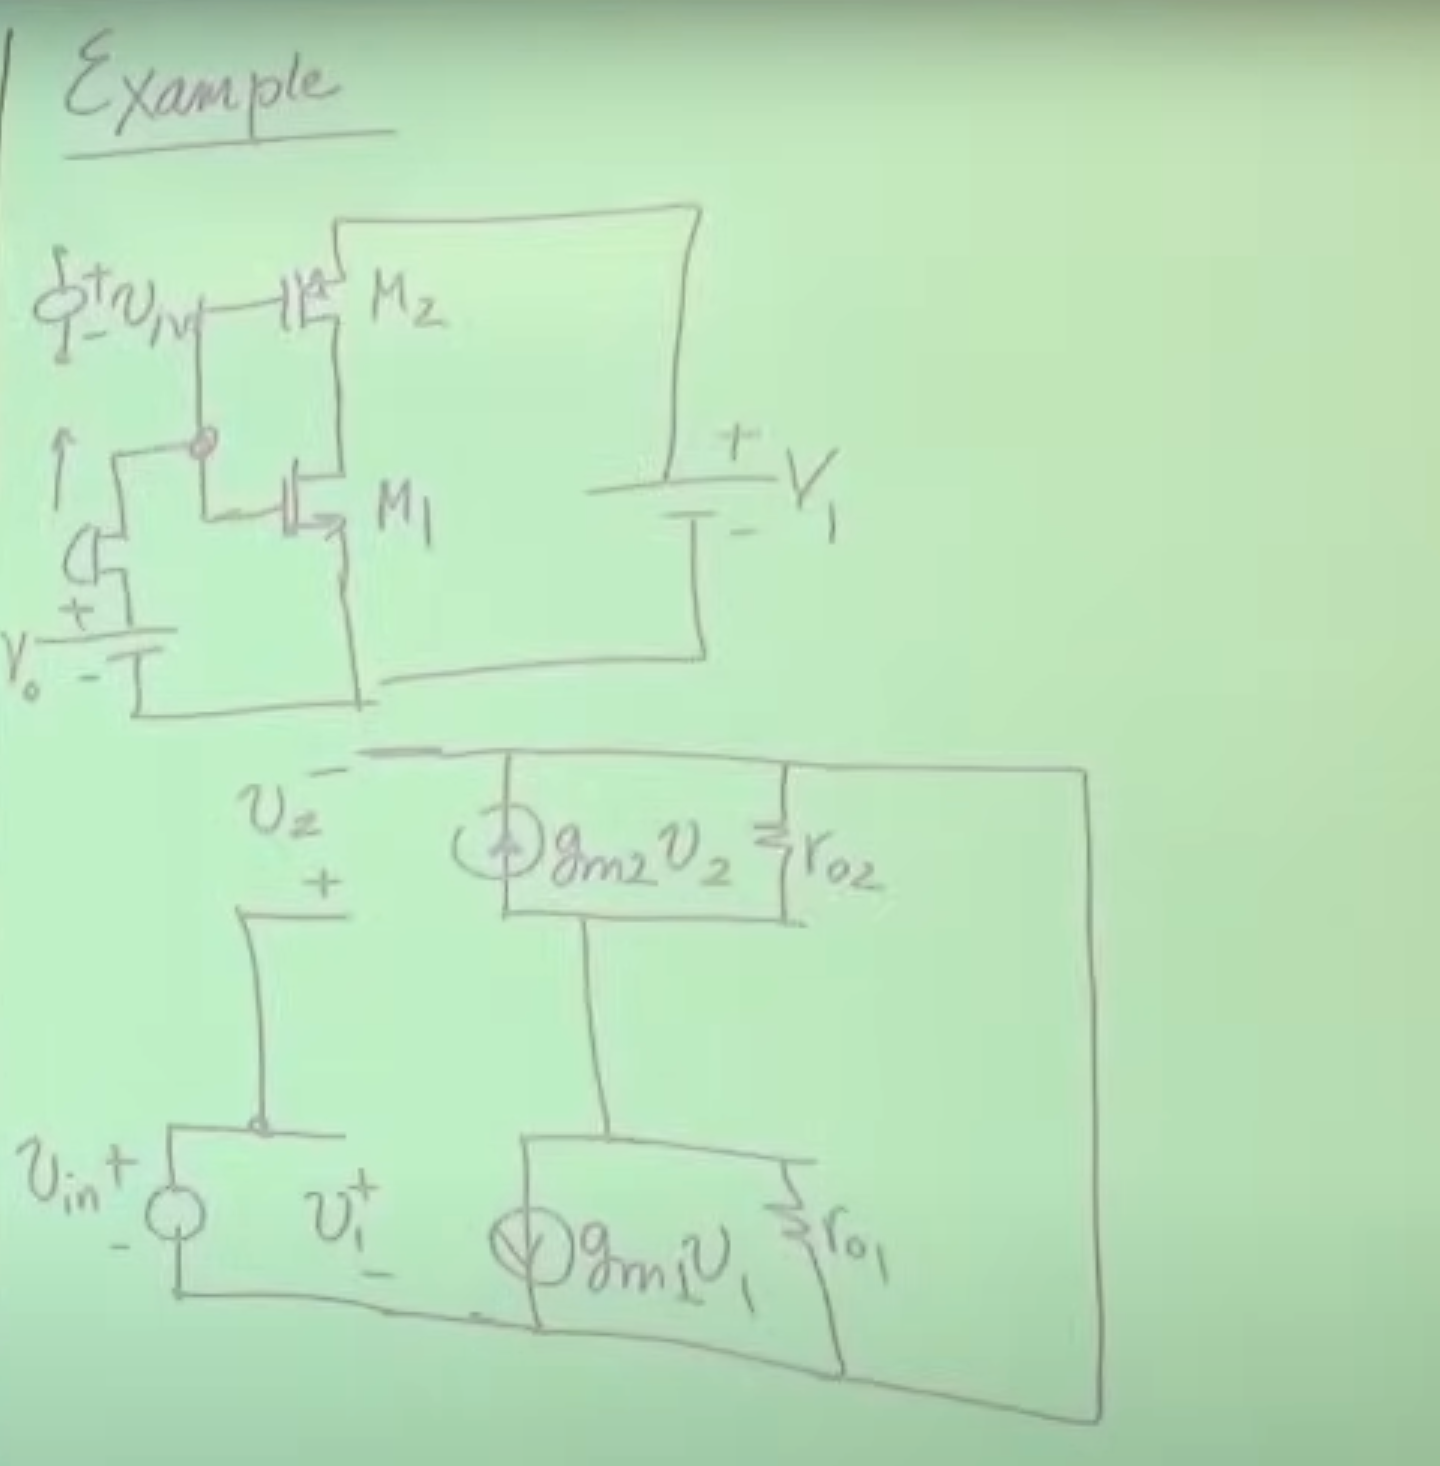 Example
+
-
vIN
M2
M1
+
V1
-
+
V0
-
-
v2
+
gm2 v2
ro2
vin
+
-
v1
+
-
gm1 v1
ro1